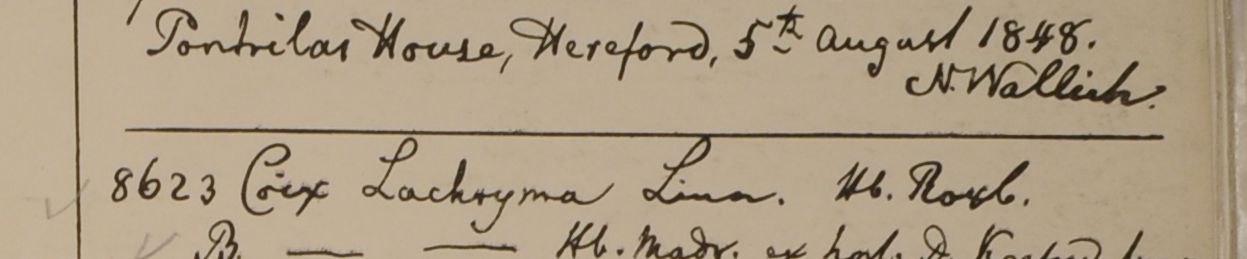 Pontrilas House, Hereford, 5th August 1848.
N. Wallich.
8623 Coix Lachryma Linn. Hb. Roxb.
B. — — Hb. Madr. ex